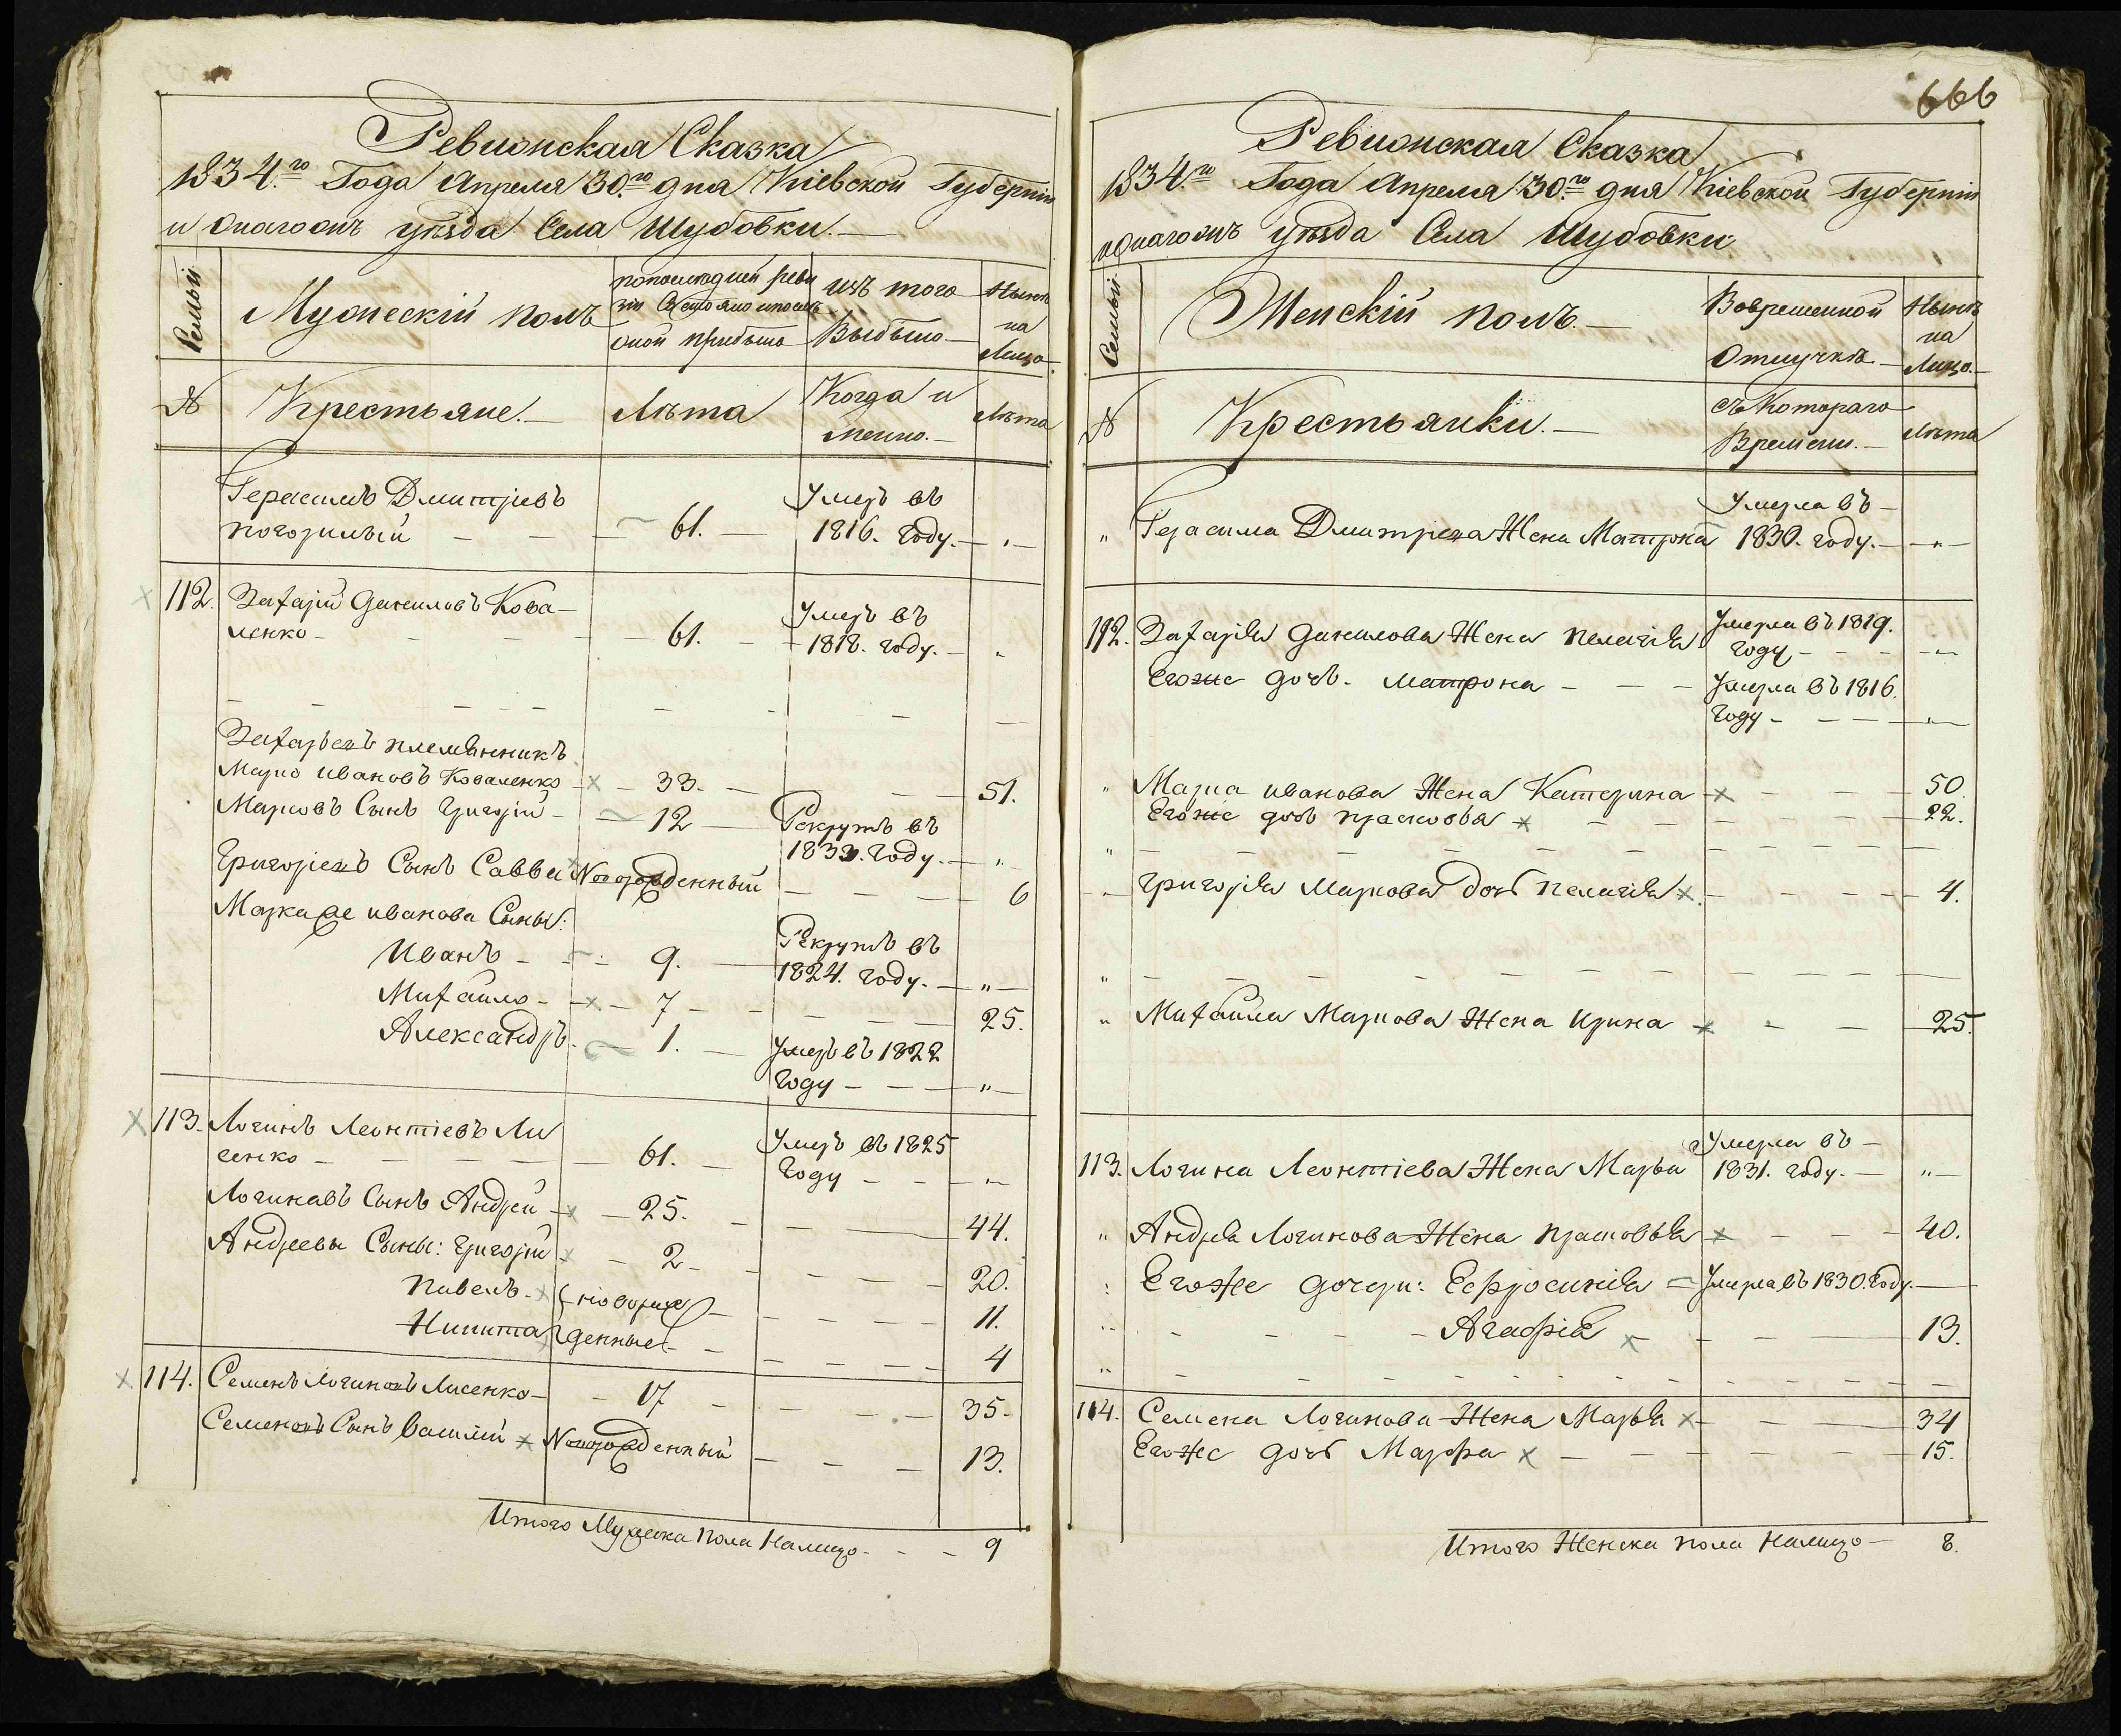 Ревизская Сказка
1834.го Года Апреля 30.го дня Кіевской Губерніи
и Онагожъ уѣзда Села Шубовки.
Семьи
Мужескій полъ
попослѣдней реви
зіи Состояло ипослѣ
оной прибыло
изъ того
Выбыло
Нынѣ
на
Лицо
№
Крестьяне.
Лѣта
Когда и
менно.
Лѣта
Герасимъ Дмитріевъ
погорилый 61. Умеръ въ
1816. году. "
112. Захарій Даниловъ Кова-
ленко 61. Умеръ въ
1818. году. "
Захарьевъ племянникъ
Марко Ивановъ Коваленко 33. 51.
Марковъ Сынъ Григорій 12 Рекрутъ въ
1833. году. "
Григоріевъ Сынъ Савва Новорожденный 6
Маркаже иванова Сыны:
Иванъ 9. Рекрутъ въ
1824. году. "
Михайло 7 25.
Александръ 1. Умеръ въ 1822
году "
113. Логинъ Леонтіевъ Ли
сенко 61. Умеръ въ 1825
году "
Логинавъ Сынъ Андрей 25. 44.
Андреевы Сыны: Григорій 2 20.
Павелъ новорож 11.
Никита денные 4
114. Семенъ Логиновъ Лисенко 17 35.
Семеновъ Сынъ Василій Новорожденный 13.
Итого Мужеска пола Налицо 9
666
Ревизская Сказка
1834.го Года Апреля 30.го дня Кіевской Губерніи
иОнагожъ уѣзда Села Шубовки
Семьи
Женскій полъ.
Вовременной
Отлучкѣ
Нынѣ
на
Лицо.
№
Крестьянки.
съ Котораго
Времени.
Лѣта
" Герасима Дмитріева Жена Матрона Умерла въ
1830. году. "
112. Захарія Данилова Жена Пелагія Умерла въ 1819.
году "
Егоже дочь Матрона Умерла въ 1816.
году "
" Марка иванова Жена Катерина 50
Егоже дочь прасковья 22.
"
" Григорія Маркова дочь Пелагія 4.
"
" Михайла Маркова Жена Ирина 25.
113. Логина Леонтіева Жена Марья Умерла въ
1831. году. "
" Андрея Логинова Жена прасковья 40.
Егоже дочери: Ефросинія Умерла въ 1830. году.
" Агафія 13.
"
114. Семена Логинова Жена Марья 34
Егоже дочь Марфа 15.
Итого Женска пола Налицо 8.